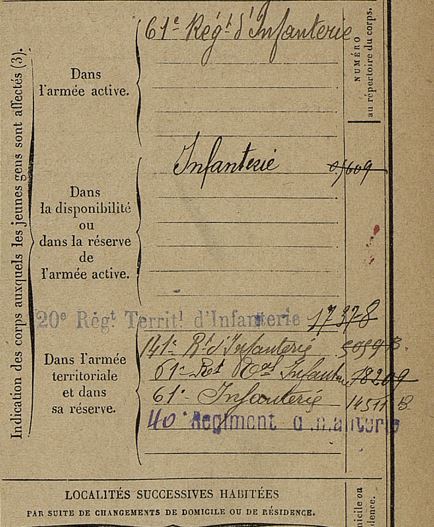 Indication des corps auxquels les jeunes gens sont affectés (3).
NUMÉRO
au répertoire du corps.
61e Régt d'Infanterie
Dans
l'armée active.
Infanterie
Dans
la disponibilité
ou
dans la réserve
de
l'armée active.
20e Régt Territl d'Infanterie 17378
141e Rt d'Infanterie
Dans l'armée
territoriale
et dans
sa réserve.
61e Infanterie 14511 B
40e Régiment d'Infanterie
LOCALITÉS SUCCESSIVES HABITÉES
PAR SUITE DE CHANGEMENTS DE DOMICILE OU DE RÉSIDENCE.